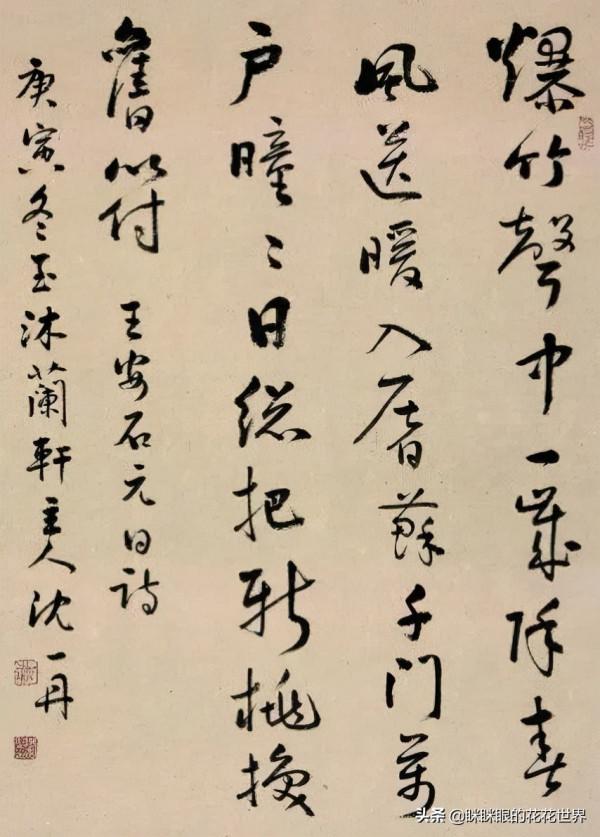 爆竹聲中一歲除春
風送暖入屠蘇千門萬
戶曈〻日總把新桃換
舊符 王安石元日詩
庚寅冬至沐蘭軒主人沈一丹
头条 @眯眯眼的花花世界